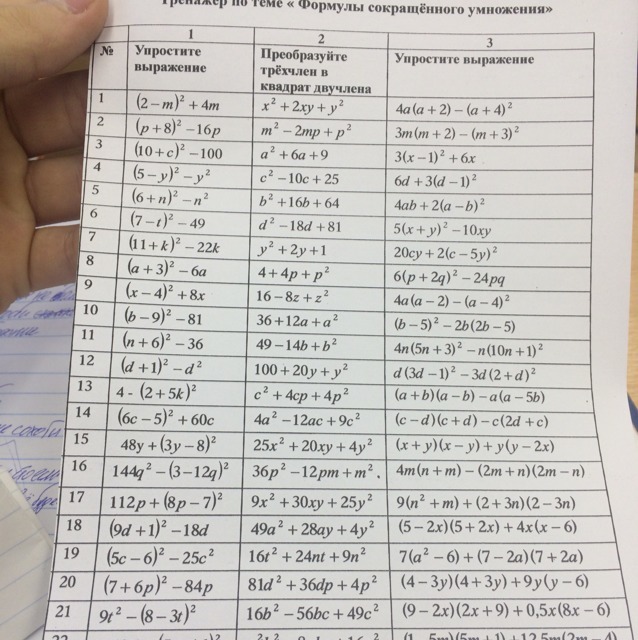 Тренажёр по теме « Формулы сокращённого умножения»
1 2 3
№ Упростите выражение Преобразуйте трёхчлен в квадрат двучлена Упростите выражение
1 (2−m)² + 4m x² + 2xy + y² 4a(a + 2) − (a + 4)²
2 (p+8)² −16p m² − 2mp + p² 3m(m + 2) − (m + 3)²
3 (10+c)² −100 a² + 6a + 9 3(x −1)² + 6x
4 (5−y)² − y² c² −10c + 25 6d + 3(d −1)²
5 (6+n)² − n² b² +16b + 64 4ab + 2(a − b)²
6 (7−t)² − 49 d² −18d + 81 5(x + y)² −10xy
7 (11+k)² − 22k y² + 2y +1 20cy + 2(c − 5y)²
8 (a+3)² − 6a 4 + 4p + p² 6(p + 2q)² − 24pq
9 (x−4)² + 8x 16 − 8z + z² 4a(a − 2) − (a − 4)²
10 (b−9)² − 81 36 +12a + a² (b − 5)² − 2b(2b − 5)
11 (n+6)² − 36 49 −14b + b² 4n(5n + 3)² − n(10n +1)²
12 (d+1)² − d² 100 + 20y + y² d(3d −1)² − 3d(2 + d)²
13 4 - (2+5k)² c² + 4cp + 4p² (a + b)(a − b) − a(a − 5b)
14 (6c−5)² + 60c 4a² −12ac + 9c² (c − d)(c + d) − c(2d + c)
15 48y + (3y−8)² 25x² + 20xy + 4y² (x + y)(x − y) + y(y − 2x)
16 144q² − (3−12q)² 36p² −12pm + m² . 4m(n + m) − (2m + n)(2m − n)
17 112p + (8p−7)² 9x² + 30xy + 25y² 9(n² + m) + (2 + 3n)(2 − 3n)
18 (9d+1)² −18d 49a² + 28ay + 4y² (5 − 2x)(5 + 2x) + 4x(x − 6)
19 (5c−6)² − 25c² 16t² + 24nt + 9n² 7(a² − 6) + (7 − 2a)(7 + 2a)
20 (7+6p)² − 84p 81d² + 36dp + 4p² (4 − 3y)(4 + 3y) + 9y(y − 6)
21 9t² − (8−3t)² 16b² − 56bc + 49c² (9 − 2x)(2x + 9) + 0,5x(8x − 6)